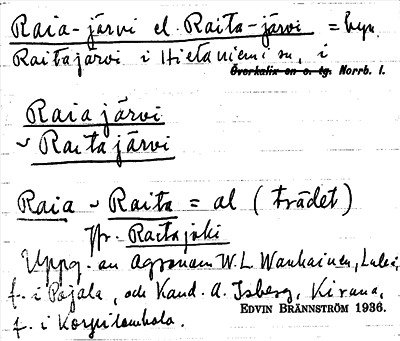 Raia-järvi el. Raita-järvi = byn
Raitajärvi i Hietaniemi sn, i
Överkalix sn o. tg. Norrb. l.
Raiajärvi
~ Raitajärvi
Raia ~ Raita = al (trädet)
Jfr. Raitajoki
Uppg. av Agronom W. L. Wanhainen, Luleå,
f. i Pajala, och Kand. A. Isberg, Kiruna,
f. i Korpilombolo.
EDVIN BRÄNNSTRÖM 1936.